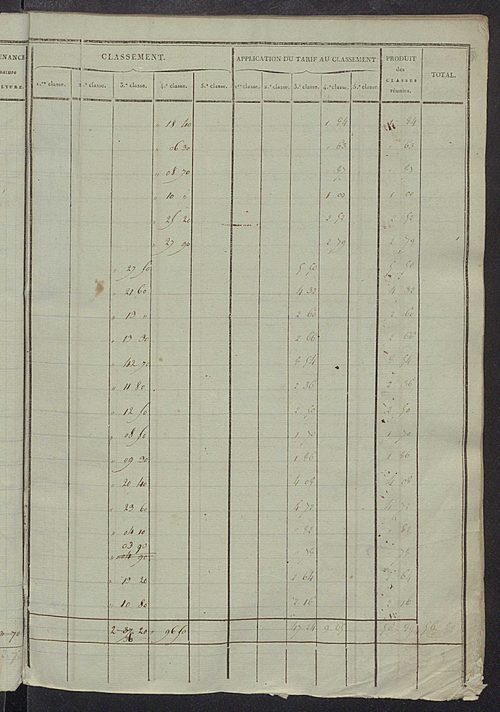 NANCE CLASSEMENT. APPLICATION DU TARIF AU CLASSEMENT PRODUIT
des
CLASSES
réunies. TOTAL.
2.e classe. 3.e classe. 4.e classe. 5.e classe. 1.ere classe. 2.e classe. 3.e classe. 4.e classe. 5.e classe.
18 40 1 84 84
06 30 63 63
08 70 87 87
10 0 1 00 1 00
25 20 2 52 2 52
27 90 2 79 2 79
27 50 5 50 50
21 60 4 32 4 32
13 0 2 60 2 60
13 30 2 66 2 66
42 70 8 54 8 54
11 80 2 36 2 36
12 50 2 50 2 50
08 50 1 70 1 70
09 30 1 86 1 86
20 40 4 08 4 08
23 60 4 72 4 72
04 10 82 82
03 90
04 90 78 78
13 20 2 64 64
10 80 2 16 2 16
2 20 96 50